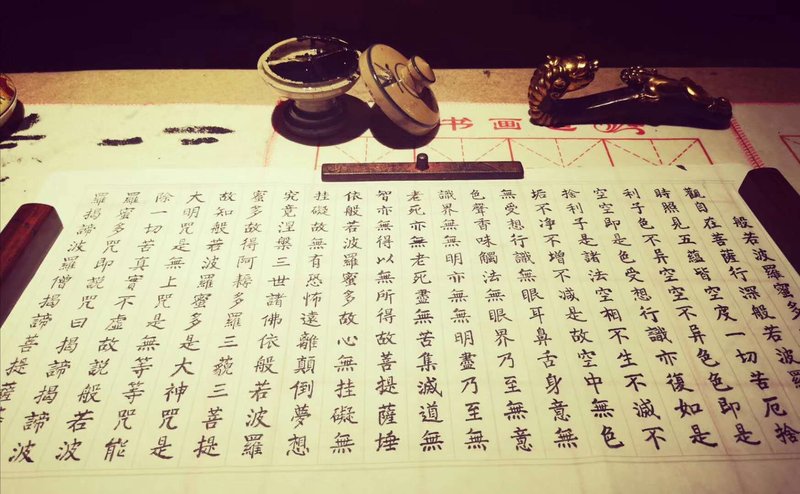 书画毡
般若波羅蜜多
觀自在菩薩行深般若波羅
時照見五蘊皆空度一切苦厄捨
利子色不異空空不異色色即是
空空即是色受想行識亦復如是
捨利子是諸法空相不生不滅不
垢不净不增不減是故空中無色
無受想行識無眼耳鼻舌身意無
色聲香味觸法無眼界乃至無意
識界無無明亦無無明盡乃至無
老死亦無老死盡無苦集滅道無
智亦無得以無所得故菩提薩埵
依般若波羅蜜多故心無挂礙無
挂礙故無有恐怖遠離顛倒夢想
究竟涅槃三世諸佛依般若波羅
蜜多故得阿耨多羅三藐三菩提
故知般若波羅蜜多是大神咒是
大明咒是無上咒是無等等咒能
除一切苦真實不虛故說般若波
羅蜜多咒即說咒曰揭諦揭諦波
羅揭諦波羅僧揭諦菩提薩